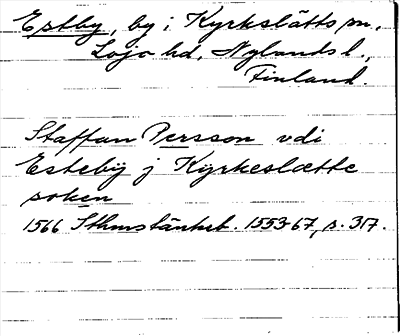 Estby, by i Kyrkslätts sn,
Lojo hd, Nylands l.,
Finland.
Staffan Persson vdi
Estebÿ j Kÿrkeslætte
soken
1566 Sthmstänkeb. 1553-67, s. 317.